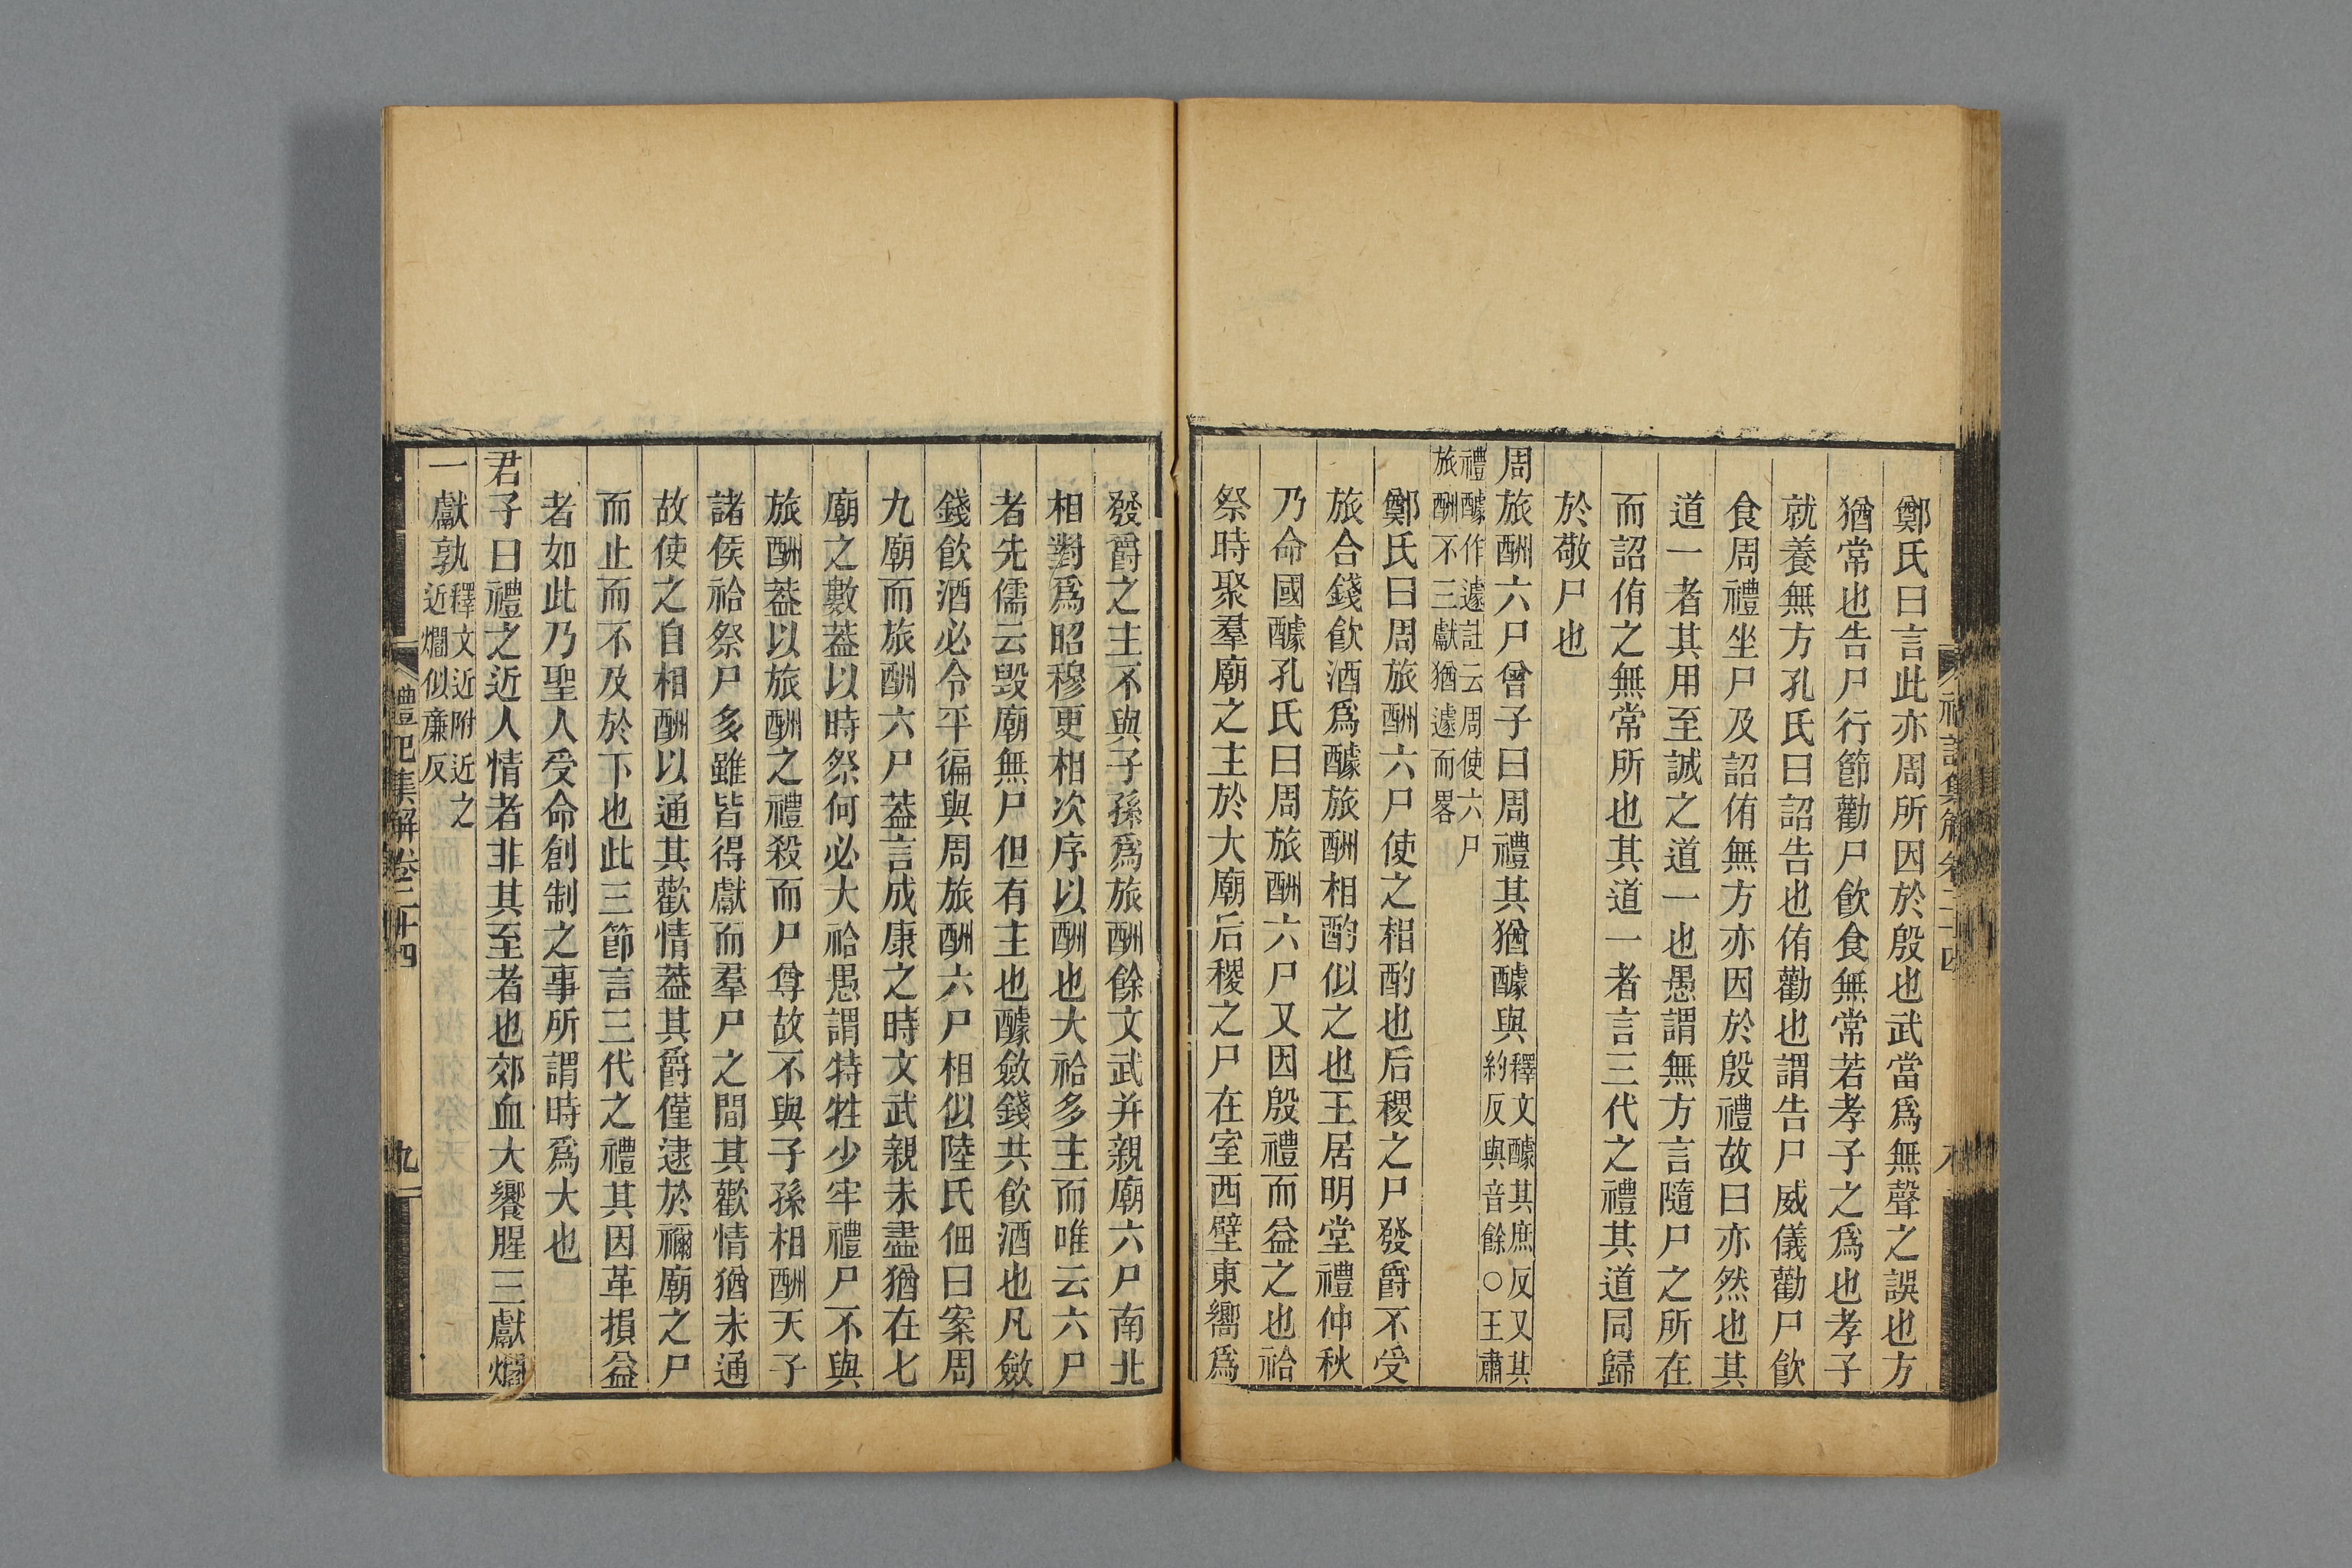 鄭氏曰言此亦周所因於殷也武當爲無聲之誤也方
猶常也告尸行節勸尸飮食無常若孝子之爲也孝子
就養無方孔氏曰詔告也侑勸也謂告尸威儀勸尸飮
食周禮坐尸及詔侑無方亦因於殷禮故曰亦然也其
道一者其用至誠之道一也愚謂無方言隨尸之所在
而詔侑之無常所也其道一者言三代之禮其道同歸
於敬尸也
周旅酬六尸曾子曰周禮其猶醵與釋文醵其庶反又其
約反與音餘○王肅
禮醵作遽註云周使六尸
旅酬不三獻猶遽而畧
鄭氏曰周旅酬六尸使之相酌也后稷之尸發爵不受
旅合錢飮酒爲醵旅酬相酌似之也王居明堂禮仲秋
乃命國醵孔氏曰周旅酬六尸又因殷禮而益之也祫
祭時聚羣廟之主於大廟后稷之尸在室西壁東嚮爲
發爵之主不與子孫爲旅酬餘文武并親廟六尸南北
相對爲昭穆更相次序以酬也大祫多主而唯云六尸
者先儒云毀廟無尸但有主也醵斂錢共飮酒也凡斂
錢飮酒必令平徧與周旅酬六尸相似陸氏佃曰案周
九廟而旅酬六尸葢言成康之時文武親未盡猶在七
廟之數葢以時祭何必大祫愚謂特牲少牢禮尸不與
旅酬葢以旅酬之禮殺而尸尊故不與子孫相酬天子
諸侯祫祭尸多雖皆得獻而羣尸之閒其歡情猶未通
故使之自相酬以通其歡情葢其爵僅逮於禰廟之尸
而止而不及於下也此三節言三代之禮其因革損益
者如此乃聖人受命創制之事所謂時爲大也
君子曰禮之近人情者非其至者也郊血大饗腥三獻爓
一獻孰釋文近附近之
近爓似廉反
禮記集解卷二十四
九